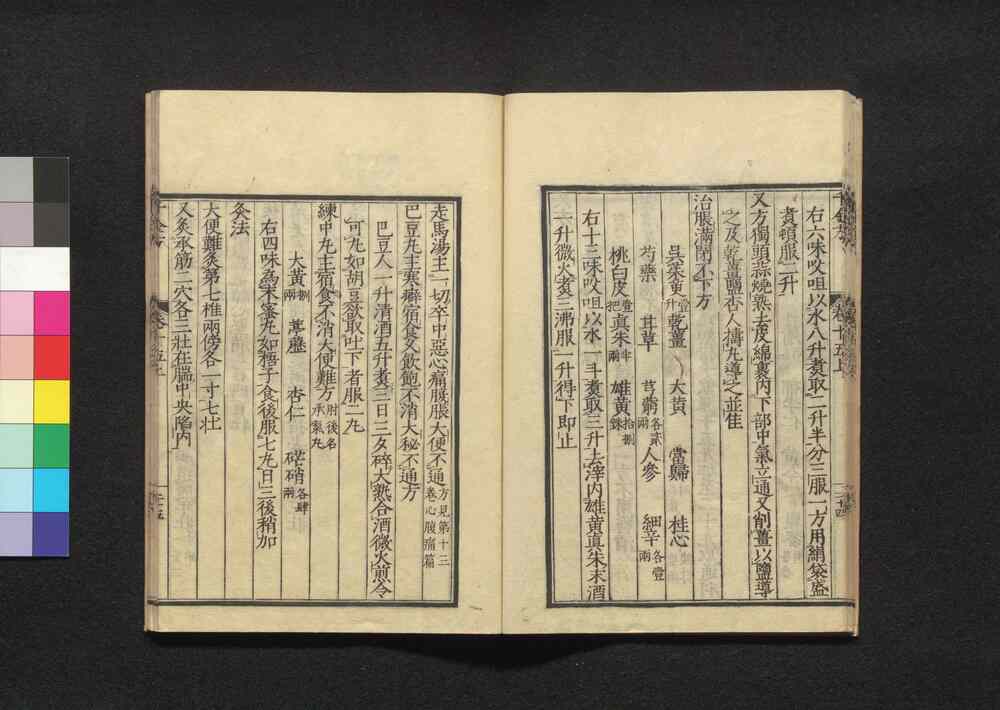 右六味㕮咀以水八升煮取二升半分三服一方用絹袋盛
煮頓服二升
又方獨頭蒜燒熟去皮綿裹內下部中氣立通又削薑以鹽導
之及乾薑鹽杏人擣丸導之並佳
治脹滿閉不下方
吳茱萸壹升 乾薑 大黃 當歸 桂心
芍藥 甘草 芎藭各貳兩 人參 細辛各壹兩
桃白皮壹把 真朱半兩 雄黃拾捌銖
右十三味㕮咀以水一斗煮取三升去滓內雄黃真朱末酒
一升微火煮三沸服一升得下即止
走馬湯主一切卒中惡心痛腹脹大便不通方見第十三卷心腹痛篇
巴豆丸主寒癖宿食久飲飽不消大秘不通方
巴豆人一升清酒五升煮三日三夕碎大熟合酒微火煎令
可丸如胡豆欲取吐下者服二丸
練中丸主宿食不消大便難方肘後名承氣丸
大黃捌兩 葶藶 杏仁 芒硝各肆兩
右四味為末蜜丸如梧子食後服七丸日三後稍加
灸法
大便難灸第七椎兩傍各一寸七壯
又灸承筋二穴各三壯在腨中央陷內